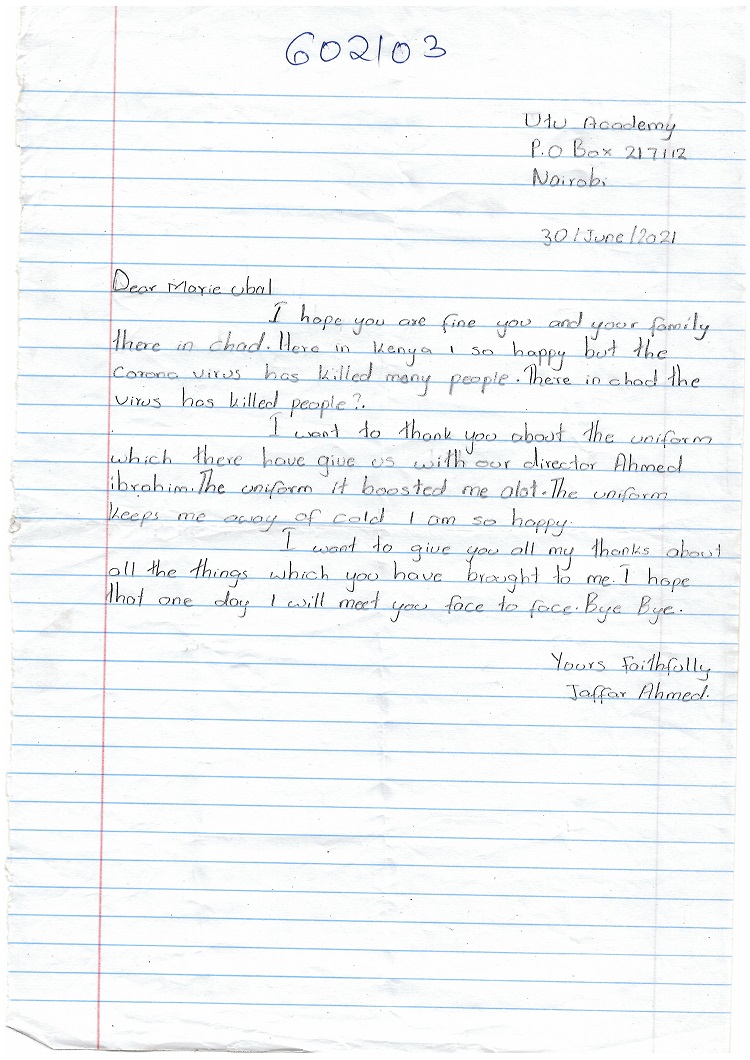 602103
Utu Academy
P.O Box 217112
Nairobi
30/June/2021
Dear Marie ubal
I hope you are fine you and your family
there in chad. Here in Kenya I so happy but the
corona virus has killed many people. There in chad the
virus has killed people?.
I want to thank you about the uniform
which there have give us with our director Ahmed
ibrahim. The uniform it boosted me alot. The uniform
keeps me away of cold I am so happy.
I want to give you all my thanks about
all the things which you have brought to me. I hope
that one day I will meet you face to face. Bye Bye.
Yours Faithfully
Jaffar Ahmed.